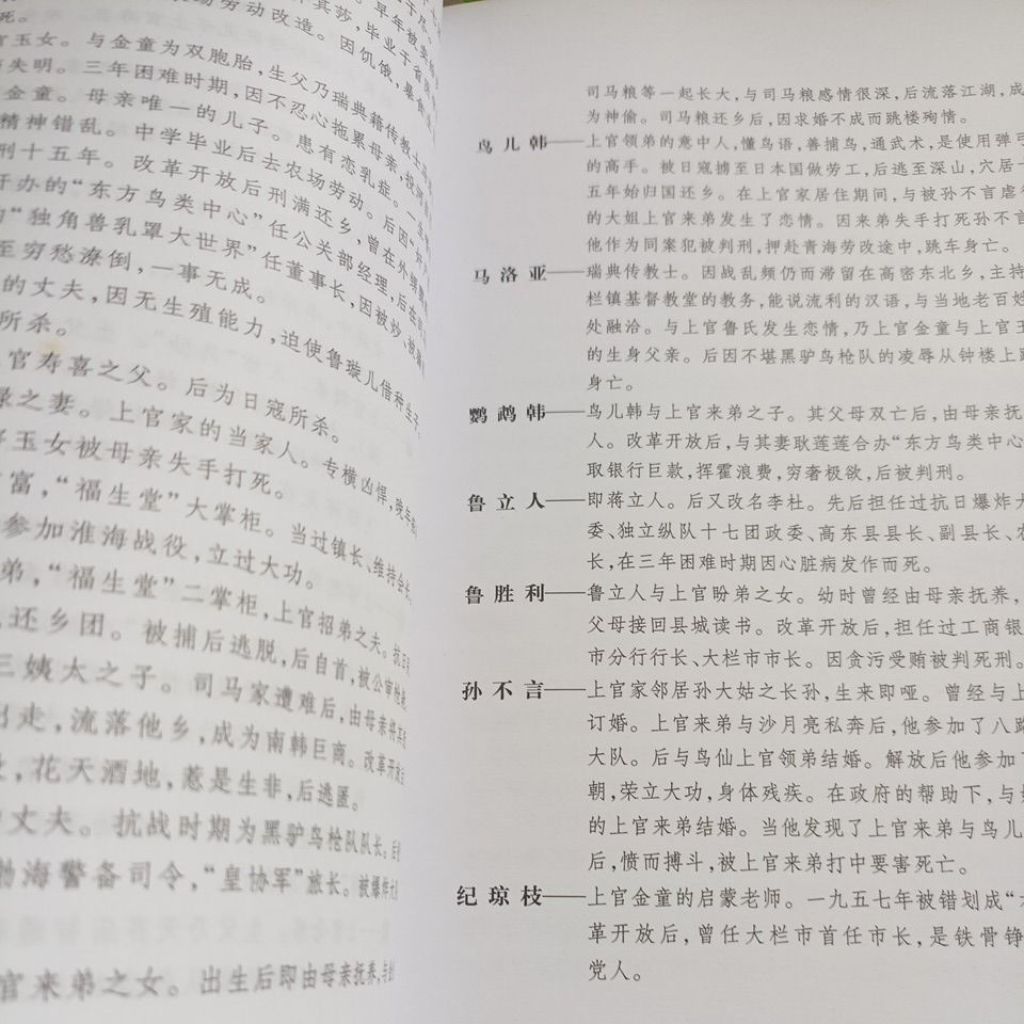 死。
官玉女。与金童为双胞胎，生父乃瑞典籍传教士
失明。三年困难时期，因不忍心拖累母亲，投
金童。母亲唯一的儿子。患有恋乳症。一
精神错乱。中学毕业后去农场劳动。后因
刑十五年。改革开放后刑满还乡，曾在外甥
开办的“东方鸟类中心”任公关部经理，后在
“独角兽乳罩大世界”任董事长，因被炒，被
至穷愁潦倒，一事无成。
的丈夫，因无生殖能力，迫使鲁璇儿借种生子
所杀。
官寿喜之父。后为日寇所杀。
禄之妻。上官家的当家人。专横凶悍，晚年
玉女被母亲失手打死。
富，“福生堂”大掌柜。当过镇长、维持会长
参加淮海战役，立过大功。
弟，“福生堂”二掌柜，上官招弟之夫。抗日
还乡团。被捕后逃脱，后自首，被公审枪毙
三姨太之子。司马家遭难后，由母亲将其
出走，流落他乡，成为南韩巨商。改革开放
花天酒地，惹是生非，后逃匿。
丈夫。抗战时期为黑驴鸟枪队队长。
渤海警备司令，“皇协军”旅长。被爆炸大
官来弟之女。出生后即由母亲抚养，与
司马粮等一起长大，与司马粮感情很深，后流落江湖，成
为神偷。司马粮还乡后，因求婚不成而跳楼殉情。
鸟儿韩——上官领弟的意中人，懂鸟语，善捕鸟，通武术，是使用弹弓
的高手。被日寇掳至日本国做劳工，后逃至深山，穴居十
五年始归国还乡。在上官家居住期间，与被孙不言虐待
的大姐上官来弟发生了恋情。因来弟失手打死孙不言
他作为同案犯被判刑，押赴青海劳改途中，跳车身亡。
马洛亚——瑞典传教士。因战乱频仍而滞留在高密东北乡，主持
栏镇基督教堂的教务，能说流利的汉语，与当地老百姓
处融洽。与上官鲁氏发生恋情，乃上官金童与上官玉
的生身父亲。后因不堪黑驴鸟枪队的凌辱从钟楼上跳
身亡。
鹦鹉韩——鸟儿韩与上官来弟之子。其父母双亡后，由母亲抚
人。改革开放后，与其妻耿莲莲合办“东方鸟类中心
取银行巨款，挥霍浪费，穷奢极欲，后被判刑。
鲁立人——即蒋立人。后又改名李杜。先后担任过抗日爆炸大
委、独立纵队十七团政委、高东县县长、副县长、农
长，在三年困难时期因心脏病发作而死。
鲁胜利——鲁立人与上官盼弟之女。幼时曾经由母亲抚养，
父母接回县城读书。改革开放后，担任过工商银
市分行行长、大栏市市长。因贪污受贿被判死刑。
孙不言——上官家邻居孙大姑之长孙，生来即哑。曾经与上
订婚。上官来弟与沙月亮私奔后，他参加了八路
大队。后与鸟仙上官领弟结婚。解放后他参加
朝，荣立大功，身体残疾。在政府的帮助下，与
的上官来弟结婚。当他发现了上官来弟与鸟儿
后，愤而搏斗，被上官来弟打中要害死亡。
纪琼枝——上官金童的启蒙老师。一九五七年被错划成“
革开放后，曾任大栏市首任市长，是铁骨铮
党人。